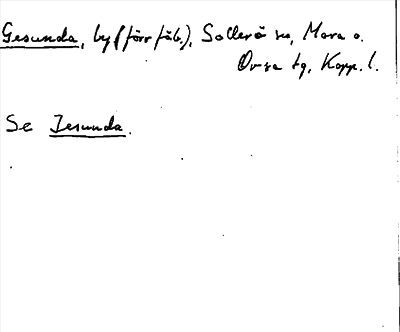 Gesunda, by (förr fäb.), Sollerö sn, Mora o.
Orsa tg, Kopp. l.
Se Jesunda.